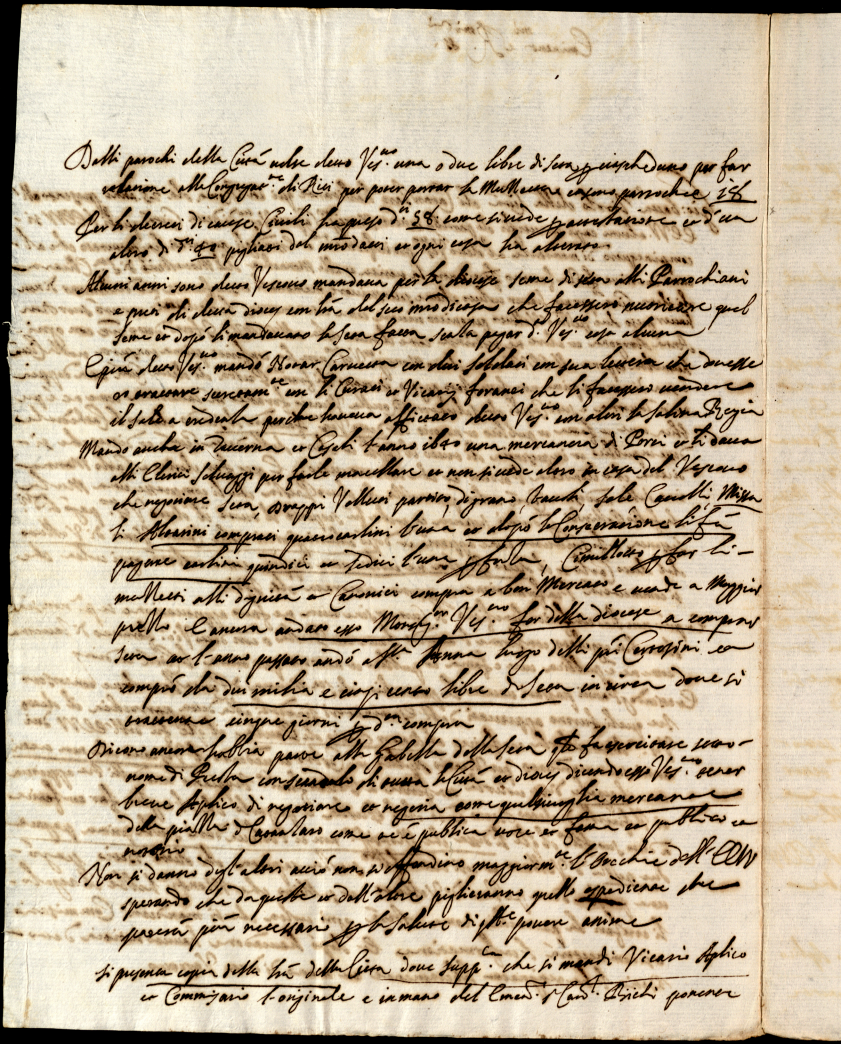 Dalli parochi della Città volse detto Ves.vo una o due libre di seta p ciascheduno per far
alla Congregat.ne di Riti per poter portar la Mozzetta parrochie 18
Per li decreti di cause Civili ha preso d.ti 58 come si vede p attestatione et d'un
altro di d.ti pigliati del et ogni cosa ha
Alcuni anni sono detto Vescovo mandava per la diocese seme di seta alli Parrochiani
e preti di detta diocese con lra del suo che facessero nutricare quel
seme et dopò li mandavano la seta fatta senza pagar d.o Ves.vo cosa alcuna
E più detto Ves.vo mandò Notar Caruetta con dui soldati con sua lettera che dovesse
trattare con li Curati et Vicarij foranei che li facessero vendere
il sale a credenza perche haveva affittato detto Ves.vo con altri la salina Regia
Mandò anche in Taverna et Casali l'anno 1640 una mercantia di Porci et li dava
alli Clerici selvaggi per farle macellare et non si vede altro in casa del Vescovo
che negotiare seta, Drappi Velluti partite di grano, sale Cavalli, Missa
li Altarini comprati quattro carlini l'uno et dopò la Consecratione li fà
pagare carlini quindici et sedici l'uno p forza, Camillotto p far li
mozzetti alli dignità et Canonici compra a bon Mercato e vende a Maggior
prezzo E ancora andato esso Mons.or Ves.vo for della diocese a comprar
seta et l'anno passato andò a S.to Anna luogo delli pri Certosini et
comprò da dui milia e cinq cento libre di seta in circa dove si
trattenne cinque giorni p d.a compra
Dicono ancora habbia parte alla Gabella della seta q.le fa esercitare sotto
nome di con scandalo di tutta la Città et diocese dicendo esso Ves.vo tener
breve Aplico di negotiare et negotia come qualsivoglia mercante
della piazza di Catanzaro come ne è publica voce et fama et publico et
notorio
Non si danno degl'altri acciò non si offendino maggiorm.te le orecchie dell'EE VV
sperando che da queste et dall'altre piglieranno quello espediente che
parerà più necessario p la salute di q.lle povere anime
Si presenta copia della lra della Città dove supp.ca che si mandi Vicario Aplico
et Commissario l'originale e in mano del Emin. S. Card. Bichi ponente